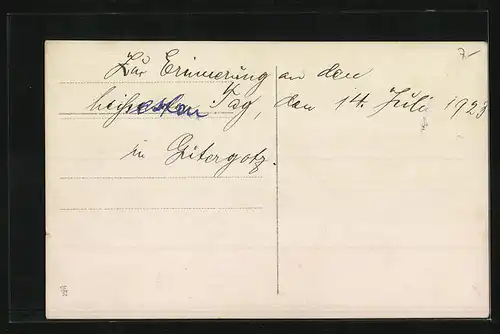 7.-
Zur Erinnerung an den
heißesten Tag, den 14. Juli 1923
in Gütergotz.